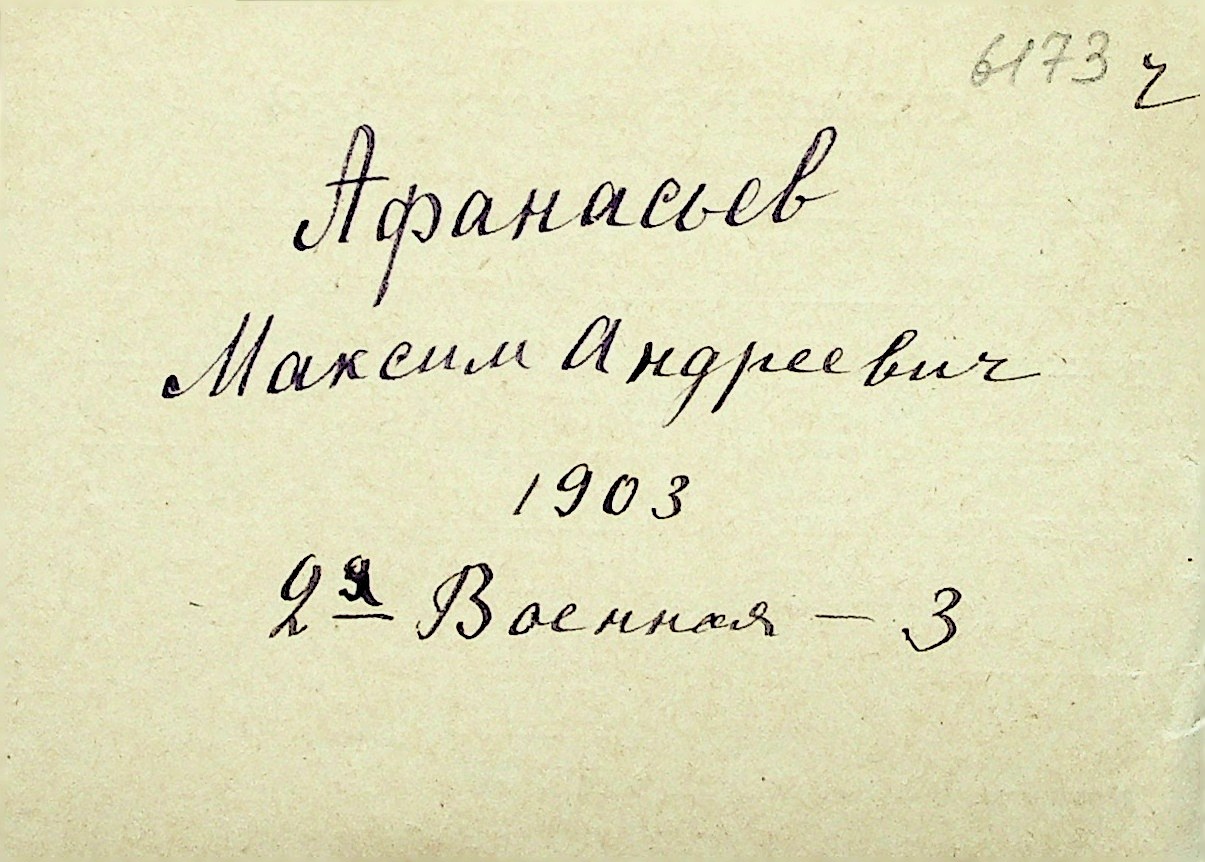 6173 ч
Афанасьев
Максим Андреевич
1903
2я Военная – 3